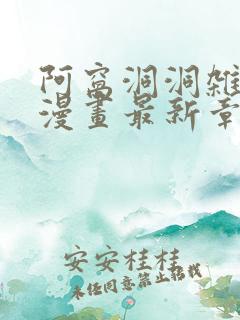 阿窩洞洞雜
漫畫最新章
安安桂桂
未经同意禁止搭栈